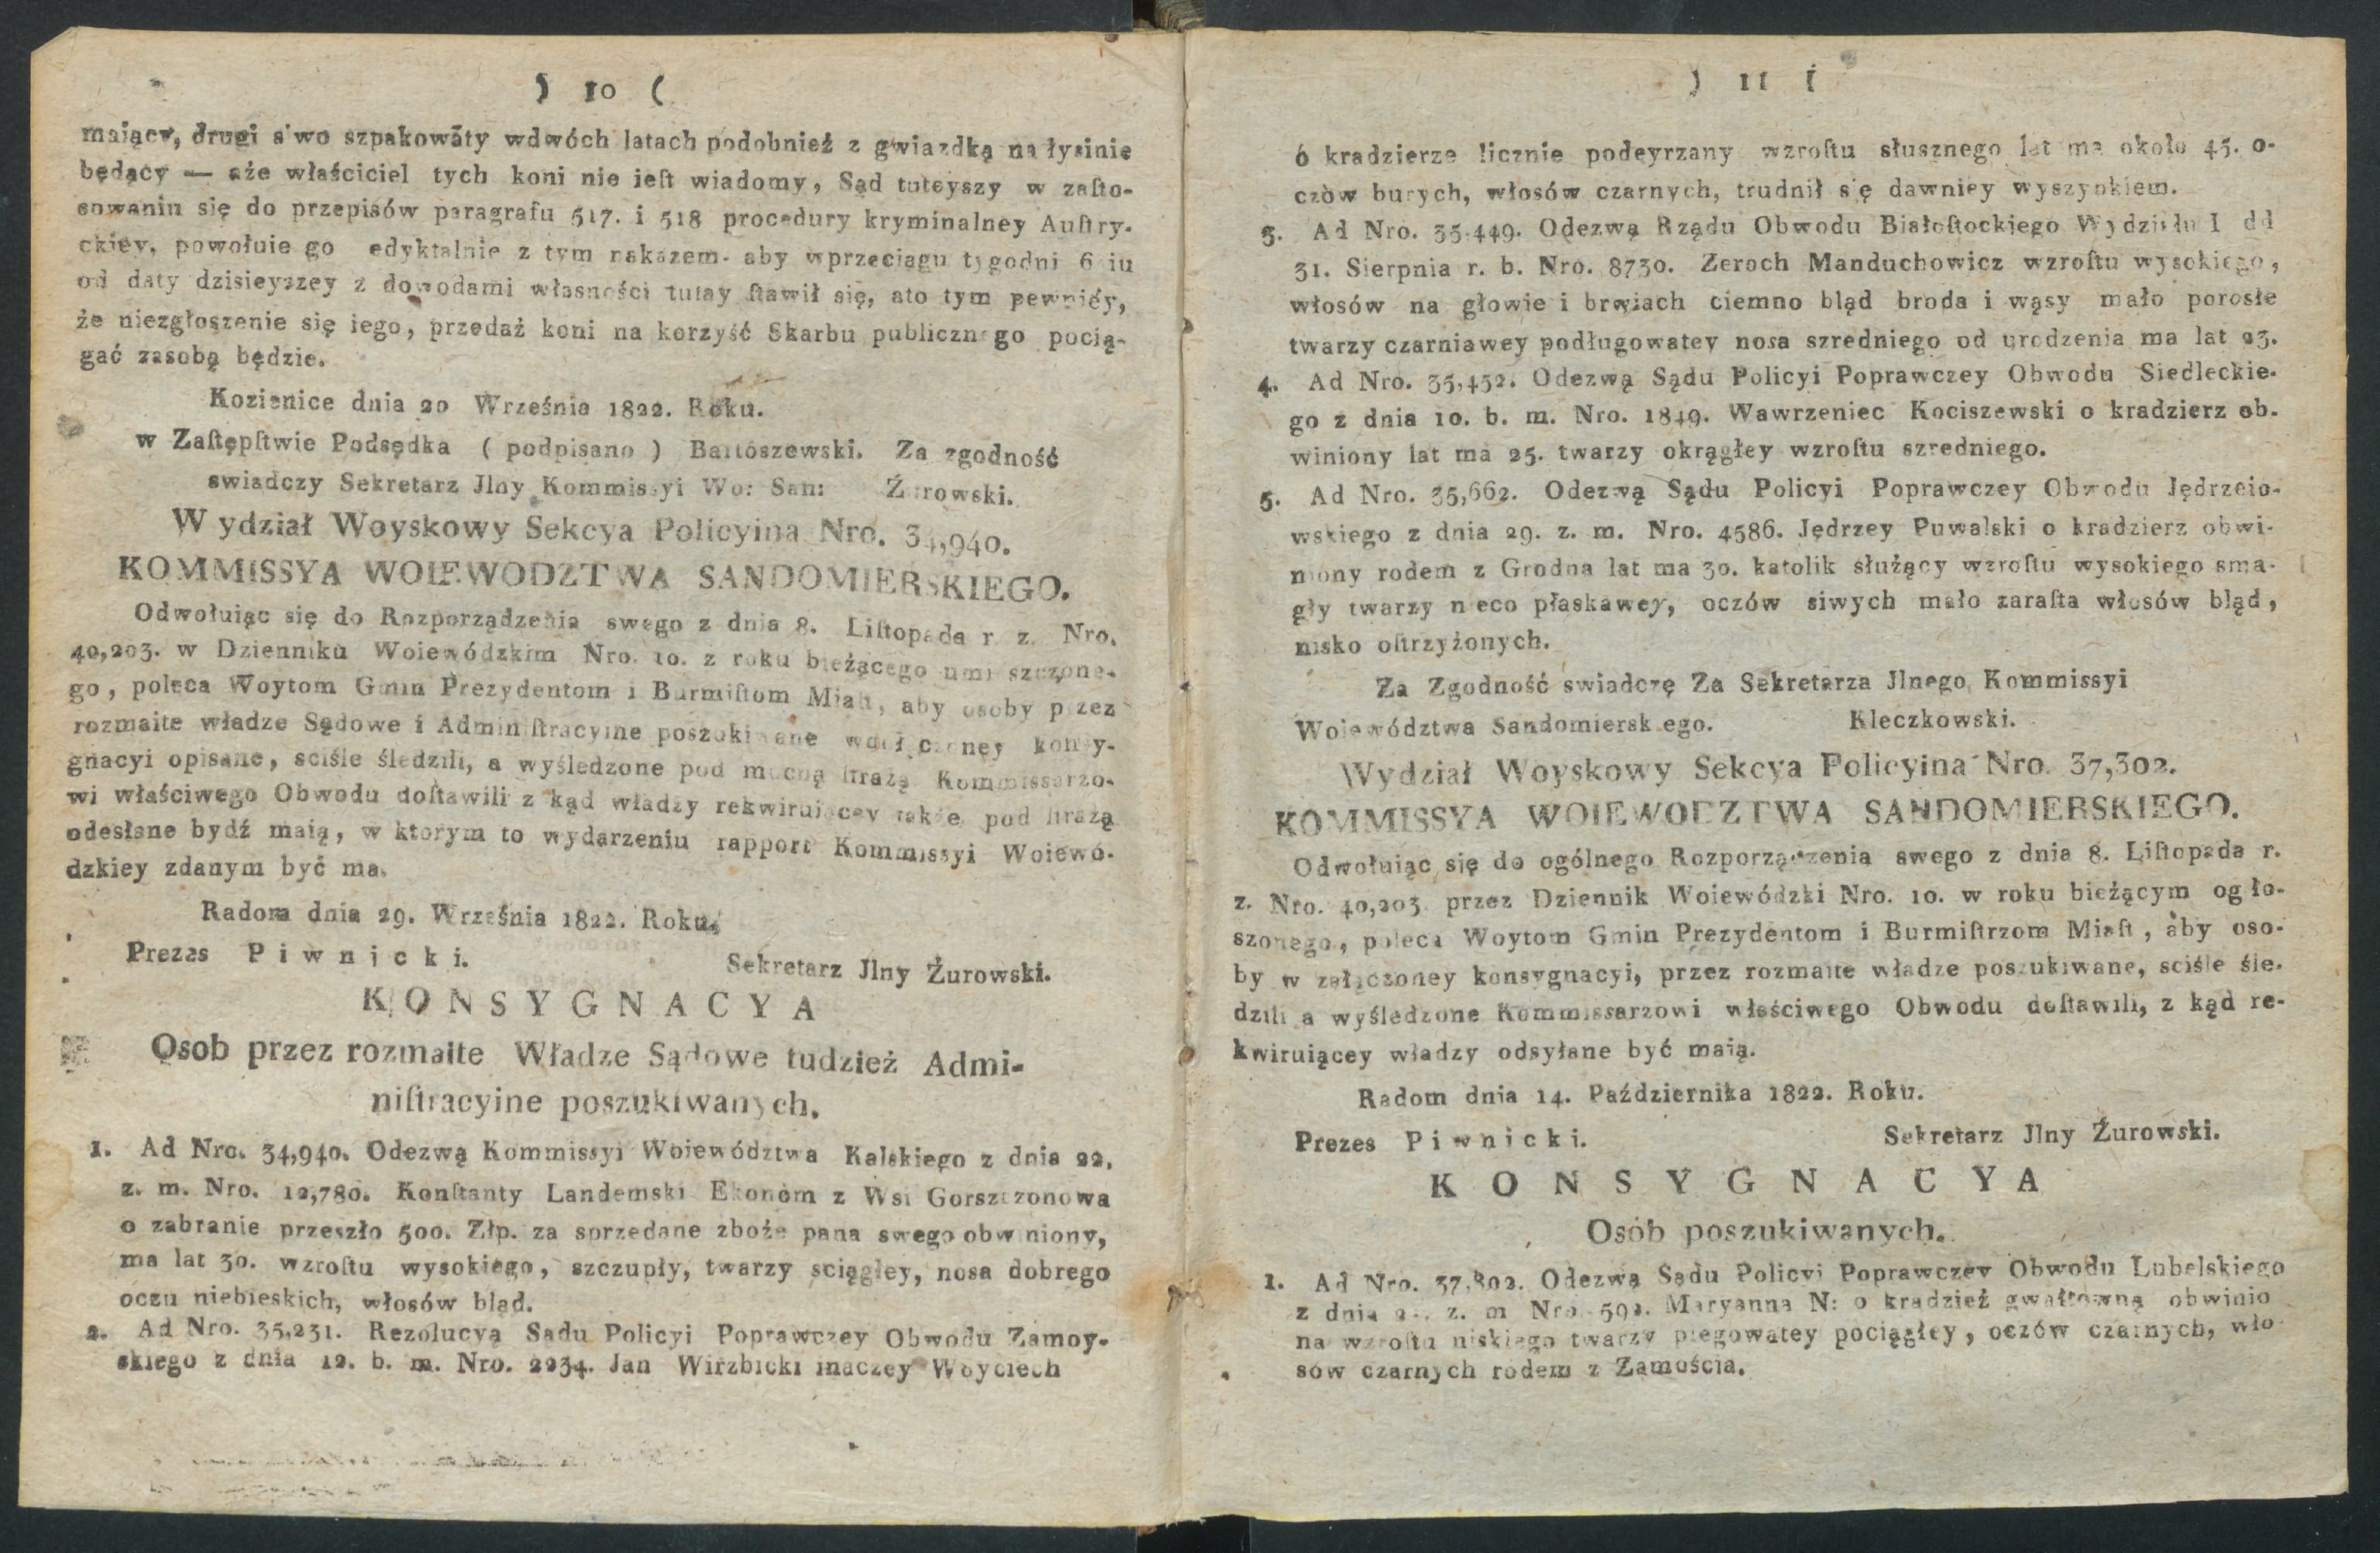 ) 10 (
maiący, drugi siwo szpakowaty wdwóch latach podobnież z gwiazdką na łysinie
będący — aże właściciel tych koni nie ieſt wiadomy, Sąd tuteyszy w zaſto-
sowaniu się do przepisów paragrafu 517. i 518 procedury kryminalney Auſtry-
ckiey, powołuie go edyktalnie z tym nakazem. aby wprzeciągu tygodni 6 iu
od daty dzisieyszey z dowodami własności tutay ſtawił się, ato tym pewniéy,
że niezgłoszenie się iego, przedaż koni na korzyść Skarbu publicznego pocią-
gać zasobą będzie.
Kozienice dnia 20 Września 1822. Roku.
w Zaſtępſtwie Podsędka ( podpisano ) Bartoszewski. Za zgodność
swiadczy Sekretarz Jlny Kommissyi Wo: San: Żurowski.
Wydział Woyskowy Sekcya Policyina Nro. 34,940.
KOMMISSYA WOIEWODZTWA SANDOMIERSKIEGO.
Odwołuiąc się do Rozporządzenia swego z dnia 8. Liſtopada r. z. Nro.
40,203. w Dzienniku Woiewódzkim Nro. 10. z roku bieżącego umi szczone-
go, poleca Woytom Gmin Prezydentom i Burmiſtom Miaſt, aby osoby przez
rozmaite władze Sądowe i Adminiſtracyine poszukiwane wdołączoney konsy-
gnacyi opisane, sciśle śledzili, a wyśledzone pod mocną ſtrażą Kommissarzo-
wi właściwego Obwodu doſtawili z kąd władzy rekwiruiącey także pod ſtrażą
odesłane bydź maią, w ktorym to wydarzeniu rapport Kommissyi Woiewó-
dzkiey zdanym być ma.
Radom dnia 29. Września 1822. Roku.
Prezes Piwnicki. Sekretarz Jlny Żurowski.
KONSYGNACYA
Osob przez rozmaite Władze Sądowe tudzież Admi-
niſtracyine poszukiwanych.
1. Ad Nro. 34,940. Odezwą Kommissyi Woiewództwa Kalskiego z dnia 22.
z. m. Nro. 12,780. Konſtanty Landemski Ekonom z Wsi Gorszczonowa
o zabranie przeszło 500. Złp. za sprzedane zboże pana swego obwiniony,
ma lat 30. wzroſtu wysokiego, szczupły, twarzy sciągłey, nosa dobrego
oczu niebieskich, włosów bląd.
2. Ad Nro. 35,231. Rezolucyą Sądu Policyi Poprawczey Obwodu Zamoy-
skiego z dnia 12. b. m. Nro. 2234. Jan Wirzbicki inaczey Woyciech
) 11 (
ó kradzierze licznie podeyrzany wzroſtu słusznego lat ma około 45. o-
czów burych, włosów czarnych, trudnił się dawniey wyszynkiem.
3. Ad Nro. 35,449. Odezwą Rządu Obwodu Białoſtockiego Wydziału I dd
31. Sierpnia r. b. Nro. 8730. Zeroch Manduchowicz wzroſtu wysokiego,
włosów na głowie i brwiach ciemno bląd broda i wąsy mało porosłe
twarzy czarniawey podługowatey nosa szredniego od urodzenia ma lat 23.
4. Ad Nro. 35,452. Odezwą Sądu Policyi Poprawczey Obwodu Siedleckie-
go z dnia 10. b. m. Nro. 1849. Wawrzeniec Kociszewski o kradzierz ob-
winiony lat ma 25. twarzy okrągłey wzroſtu szredniego.
5. Ad Nro. 35,662. Odezwą Sądu Policyi Poprawczey Obwodu Jędrzeio-
wskiego z dnia 29. z. m. Nro. 4586. Jędrzey Puwalski o kradzierz obwi-
niony rodem z Grodna lat ma 30. katolik służący wzroſtu wysokiego sma-
gły twarzy nieco płaskawey, oczów siwych mało zaraſta włosów bląd,
nisko oſtrzyżonych.
Za Zgodność swiadczę Za Sekretarza Jlnego Kommissyi
Woiewództwa Sandomierskiego. Kleczkowski.
Wydział Woyskowy Sekcya Policyina Nro. 37,302.
KOMMISSYA WOIEWODZTWA SANDOMIERSKIEGO.
Odwołuiąc się do ogólnego Rozporządzenia swego z dnia 8. Liſtopada r.
z. Nro. 40,203 przez Dziennik Woiewódzki Nro. 10. w roku bieżącym ogło-
szonego, poleca Woytom Gmin Prezydentom i Burmiſtrzom Miaſt, aby oso-
by w załączoney konsygnacyi, przez rozmaite władze poszukiwane, sciśle śle-
dzili a wyśledzone Kommissarzowi właściwego Obwodu doſtawili, z kąd re-
kwiruiącey władzy odsyłane być maią.
Radom dnia 14. Października 1822. Roku.
Prezes Piwnicki. Sekretarz Jlny Żurowski.
KONSYGNACYA
Osób poszukiwanych.
1. Ad Nro. 37,302. Odezwą Sądu Policyi Poprawczey Obwodu Lubelskiego
z dnia z. m Nro. 592. Maryanna N: o kradzież gwałtowną obwinio
na wzroſtu niskiego twarzy piegowatey pociągłey, oczów czarnych, wło
sow czarnych rodem z Zamościa.